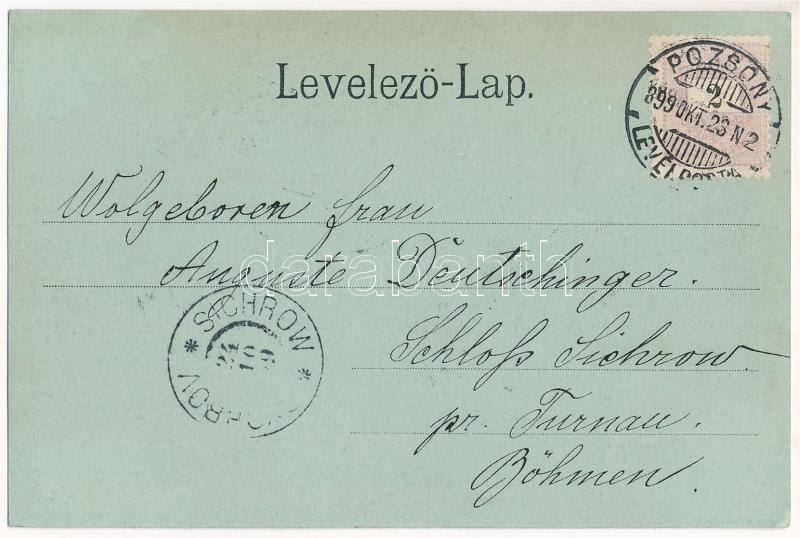 Levelező-Lap.
POZSONY
2
899 OKT. 23 N2
Wolgeboren frau
Auguste Deutschinger.
Schloß Sichrow
pr. Turnau.
Böhmen.
SICHROW
24
10
SICHROV
darabanth